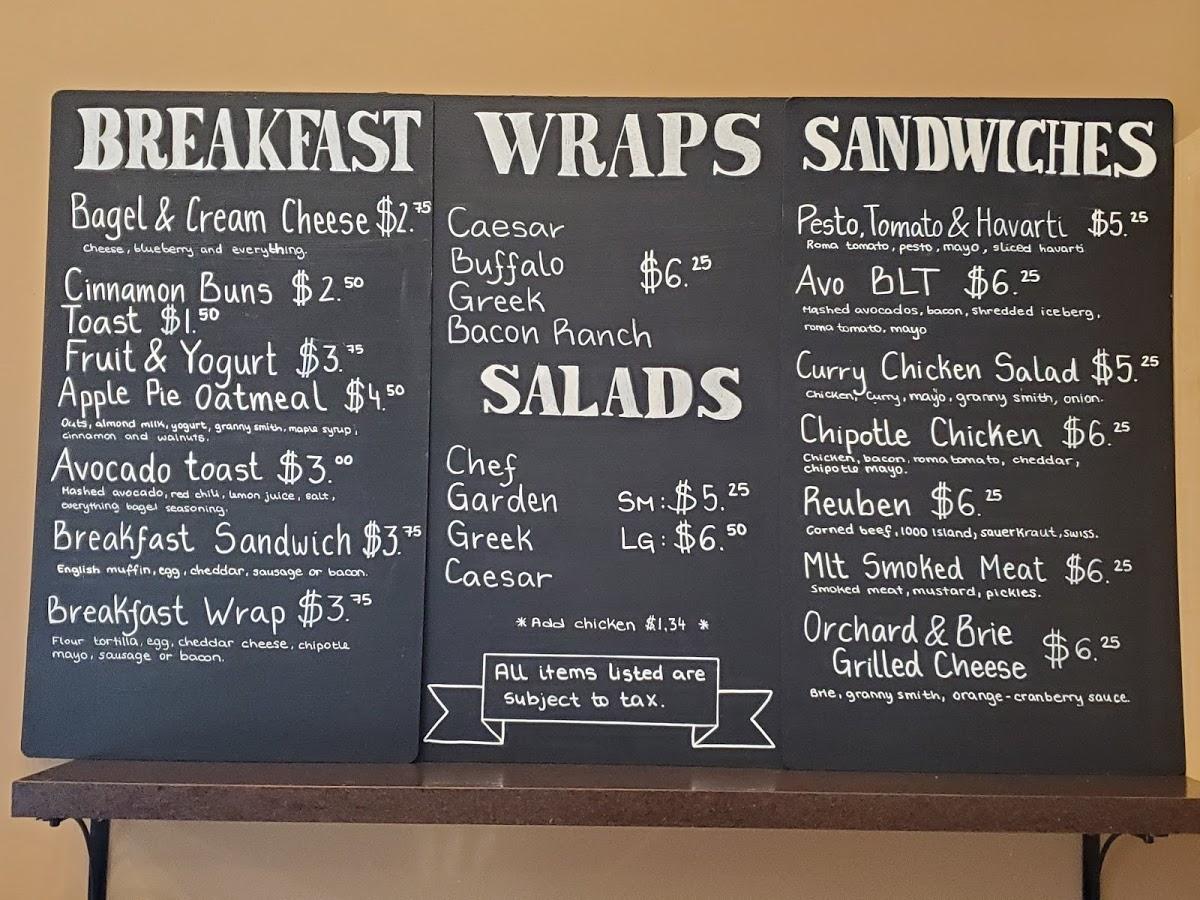 BREAKFAST
Bagel & Cream Cheese $2.75
Cheese, blueberry and everything.
Cinnamon Buns $2.50
Toast $1.50
Fruit & Yogurt $3.75
Apple Pie Oatmeal $4.50
Oats, almond milk, yogurt, granny smith, maple syrup,
cinnamon and walnuts.
Avocado toast $3.00
Mashed avocado, red chili, lemon juice, salt,
everything bagel seasoning.
Breakfast Sandwich $3.75
English muffin, egg, cheddar, sausage or bacon.
Breakfast Wrap $3.75
Flour tortilla, egg, cheddar cheese, chipotle
mayo, sausage or bacon.
WRAPS
Caesar
Buffalo $6.25
Greek
Bacon Ranch
SALADS
Chef
Garden SM: $5.25
Greek LG: $6.50
Caesar
* Add chicken $1.34 *
All items listed are
subject to tax.
SANDWICHES
Pesto, Tomato & Havarti $5.25
Roma tomato, pesto, mayo, sliced havarti
Avo BLT $6.25
Mashed avocados, bacon, shredded iceberg,
roma tomato, mayo
Curry Chicken Salad $5.25
Chicken, curry, mayo, granny smith, onion.
Chipotle Chicken $6.25
Chicken, bacon, roma tomato, cheddar,
chipotle mayo.
Reuben $6.25
Corned beef, 1000 island, sauerkraut, swiss.
Mlt Smoked Meat $6.25
Smoked meat, mustard, pickles.
Orchard & Brie
Grilled Cheese $6.25
Brie, granny smith, orange-cranberry sauce.